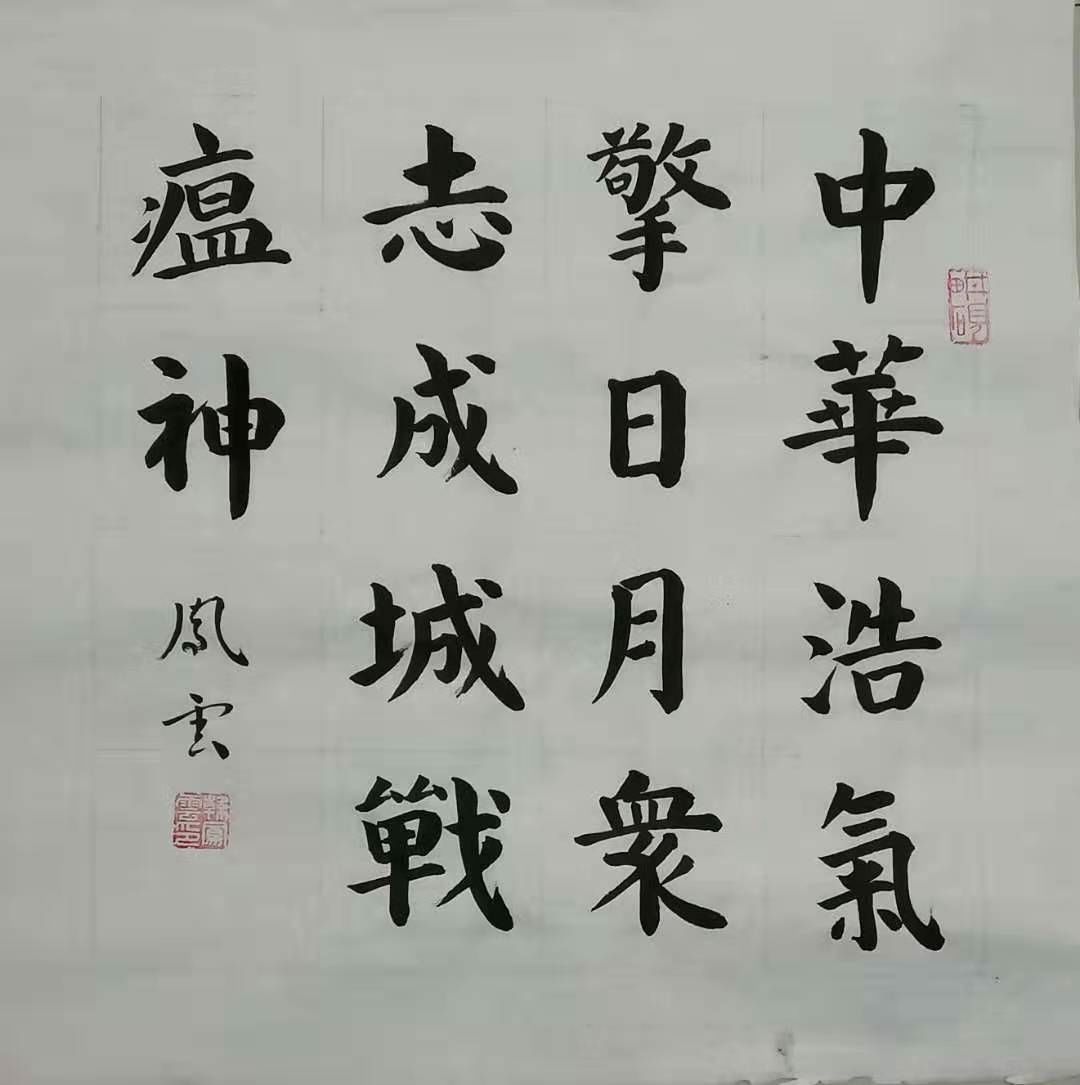 中華浩氣
擎日月衆
志成城戰
瘟神
鳳雲